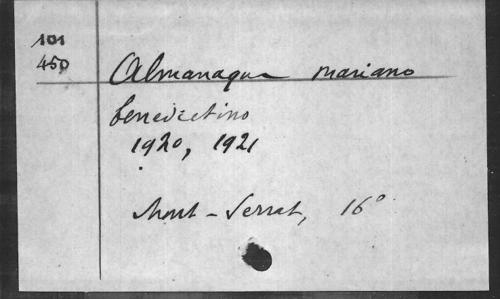 101
450
Almanaque mariano
benedictino
1920, 1921
Mont-Serrat, 16°